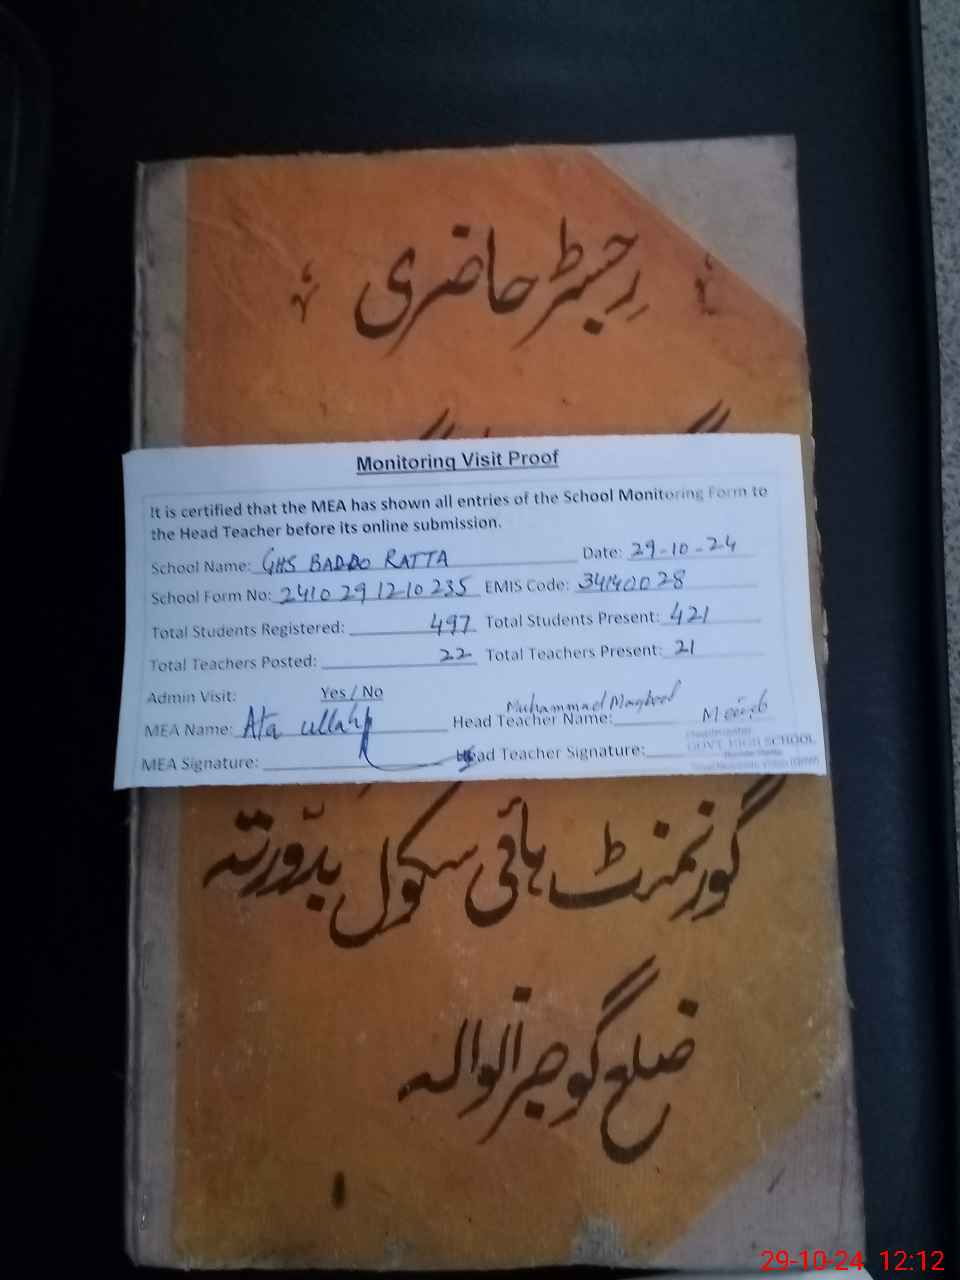 رجسٹر حاضری
Monitoring Visit Proof
It is certified that the MEA has shown all entries of the School Monitoring Form to
the Head Teacher before its online submission.
School Name: GHS BADDO RATTA Date: 29-10-24
School Form No: 2410291210235 EMIS Code: 34140028
Total Students Registered: 497 Total Students Present: 421
Total Teachers Posted: 22 Total Teachers Present: 21
Admin Visit: Yes / No
MEA Name: Ata ullah Head Teacher Name: Muhammad Maqbool
MEA Signature: Head Teacher Signature:
GOVT. HIGH SCHOOL
گورنمنٹ ہائی سکول بدّورتہ
ضلع گوجرانوالہ
29-10-24 12:12